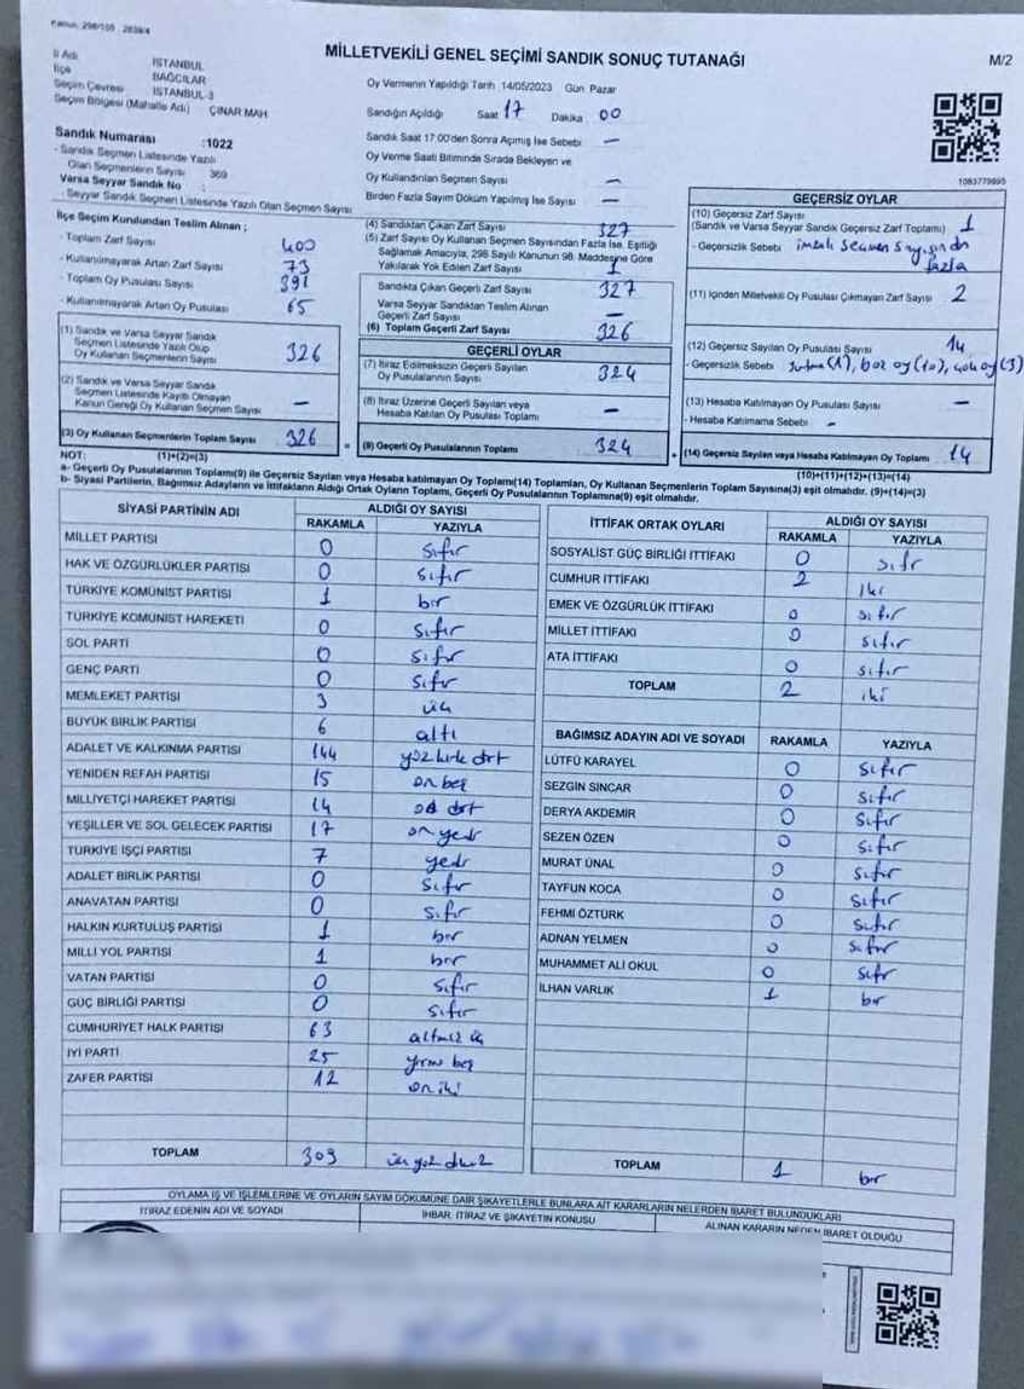 MİLLETVEKİLİ GENEL SEÇİMİ SANDIK SONUÇ TUTANAĞI
M/2
İl Adı İSTANBUL
İlçe BAĞCILAR
Seçim Çevresi İSTANBUL-3
Seçim Bölgesi (Mahalle Adı) ÇINAR MAH
Sandık Numarası :1022
- Sandık Seçmen Listesinde Yazılı
Olan Seçmenlerin Sayısı 369
Varsa Seyyar Sandık No :
- Seyyar Sandık Seçmen Listesinde Yazılı Olan Seçmen Sayısı
Oy Vermenin Yapıldığı Tarih 14/05/2023 Gün Pazar
Sandığın Açıldığı Saat 17 Dakika 00
Sandık Saat 17:00'den Sonra Açımış İse Sebebi —
Oy Verme Saati Bitiminde Sırada Bekleyen ve
Oy Kullandırılan Seçmen Sayısı —
Birden Fazla Sayım Döküm Yapılmış İse Sayısı —
1083779995
İlçe Seçim Kurulundan Teslim Alınan ;
- Toplam Zarf Sayısı 400
- Kullanılmayarak Artan Zarf Sayısı 73
- Toplam Oy Pusulası Sayısı 391
- Kullanılmayarak Artan Oy Pusulası 65
(1) Sandık ve Varsa Seyyar Sandık
Seçmen Listesinde Yazılı Olup
Oy Kullanan Seçmenlerin Sayısı 326
(2) Sandık ve Varsa Seyyar Sandık
Seçmen Listesinde Kayıtlı Olmayan
Kanun Gereği Oy Kullanan Seçmen Sayısı —
(3) Oy Kullanan Seçmenlerin Toplam Sayısı 326
(1)+(2)=(3)
(4) Sandıktan Çıkan Zarf Sayısı 327
(5) Zarf Sayısı Oy Kullanan Seçmen Sayısından Fazla İse, Eşitliği
Sağlamak Amacıyla, 298 Sayılı Kanunun 98. Maddesine Göre
Yakılarak Yok Edilen Zarf Sayısı 1
Sandıkta Çıkan Geçerli Zarf Sayısı 327
Varsa Seyyar Sandıktan Teslim Alınan
Geçerli Zarf Sayısı —
(6) Toplam Geçerli Zarf Sayısı 326
GEÇERLİ OYLAR
(7) İtiraz Edilmeksizin Geçerli Sayılan
Oy Pusulalarının Sayısı 324
(8) İtiraz Üzerine Geçerli Sayılan veya
Hesaba Katılan Oy Pusulası Toplamı —
= (9) Geçerli Oy Pusulalarının Toplamı 324
GEÇERSİZ OYLAR
(10) Geçersiz Zarf Sayısı 1
(Sandık ve Varsa Seyyar Sandık Geçersiz Zarf Toplamı)
- Geçersizlik Sebebi imzalı seçmen sayısından
fazla
(11) İçinden Milletvekili Oy Pusulası Çıkmayan Zarf Sayısı 2
(12) Geçersiz Sayılan Oy Pusulası Sayısı 14
- Geçersizlik Sebebi (1), boz oy(10), çok oy(3)
(13) Hesaba Katılmayan Oy Pusulası Sayısı —
- Hesaba Katılmama Sebebi -
+ (14) Geçersiz Sayılan veya Hesaba Katılmayan Oy Toplamı 14
(10)+(11)+(12)+(13)=(14)
NOT:
a- Geçerli Oy Pusulalarının Toplamı(9) ile Geçersiz Sayılan veya Hesaba katılmayan Oy Toplamı(14) Toplamları, Oy Kullanan Seçmenlerin Toplam Sayısına(3) eşit olmalıdır. (9)+(14)=(3)
b- Siyasi Partilerin, Bağımsız Adayların ve İttifakların Aldığı Ortak Oyların Toplamı, Geçerli Oy Pusulalarının Toplamına(9) eşit olmalıdır.
SİYASİ PARTİNİN ADI ALDIĞI OY SAYISI
RAKAMLA YAZIYLA
MİLLET PARTİSİ 0 sıfır
HAK VE ÖZGÜRLÜKLER PARTİSİ 0 sıfır
TÜRKİYE KOMÜNİST PARTİSİ 1 bir
TÜRKİYE KOMÜNİST HAREKETİ 0 sıfır
SOL PARTİ 0 sıfır
GENÇ PARTİ 0 sıfır
MEMLEKET PARTİSİ 3 üç
BÜYÜK BİRLİK PARTİSİ 6 altı
ADALET VE KALKINMA PARTİSİ 144 yüz kırk dört
YENİDEN REFAH PARTİSİ 15 on beş
MİLLİYETÇİ HAREKET PARTİSİ 14 on dört
YEŞİLLER VE SOL GELECEK PARTİSİ 17 on yedi
TÜRKİYE İŞÇİ PARTİSİ 7 yedi
ADALET BİRLİK PARTİSİ 0 sıfır
ANAVATAN PARTİSİ 0 sıfır
HALKIN KURTULUŞ PARTİSİ 1 bir
MİLLİ YOL PARTİSİ 1 bir
VATAN PARTİSİ 0 sıfır
GÜÇ BİRLİĞİ PARTİSİ 0 sıfır
CUMHURİYET HALK PARTİSİ 63 altmış üç
İYİ PARTİ 25 yirmi beş
ZAFER PARTİSİ 12 on iki
TOPLAM 309 üç yüz dokuz
İTTİFAK ORTAK OYLARI ALDIĞI OY SAYISI
RAKAMLA YAZIYLA
SOSYALİST GÜÇ BİRLİĞİ İTTİFAKI 0 sıfır
CUMHUR İTTİFAKI 2 iki
EMEK VE ÖZGÜRLÜK İTTİFAKI 0 sıfır
MİLLET İTTİFAKI 0 sıfır
ATA İTTİFAKI 0 sıfır
TOPLAM 2 iki
BAĞIMSIZ ADAYIN ADI VE SOYADI RAKAMLA YAZIYLA
LÜTFÜ KARAYEL 0 sıfır
SEZGİN SİNCAR 0 sıfır
DERYA AKDEMİR 0 sıfır
SEZEN ÖZEN 0 sıfır
MURAT ÜNAL 0 sıfır
TAYFUN KOCA 0 sıfır
FEHMİ ÖZTÜRK 0 sıfır
ADNAN YELMEN 0 sıfır
MUHAMMET ALİ OKUL 0 sıfır
İLHAN VARLIK 1 bir
TOPLAM 1 bir
OYLAMA İŞ VE İŞLEMLERİNE VE OYLARIN SAYIM DÖKÜMÜNE DAİR ŞİKAYETLERLE BUNLARA AİT KARARLARIN NELERDEN İBARET BULUNDUKLARI
İTİRAZ EDENİN ADI VE SOYADI İHBAR, İTİRAZ VE ŞİKAYETİN KONUSU ALINAN KARARIN NEDEN İBARET OLDUĞU